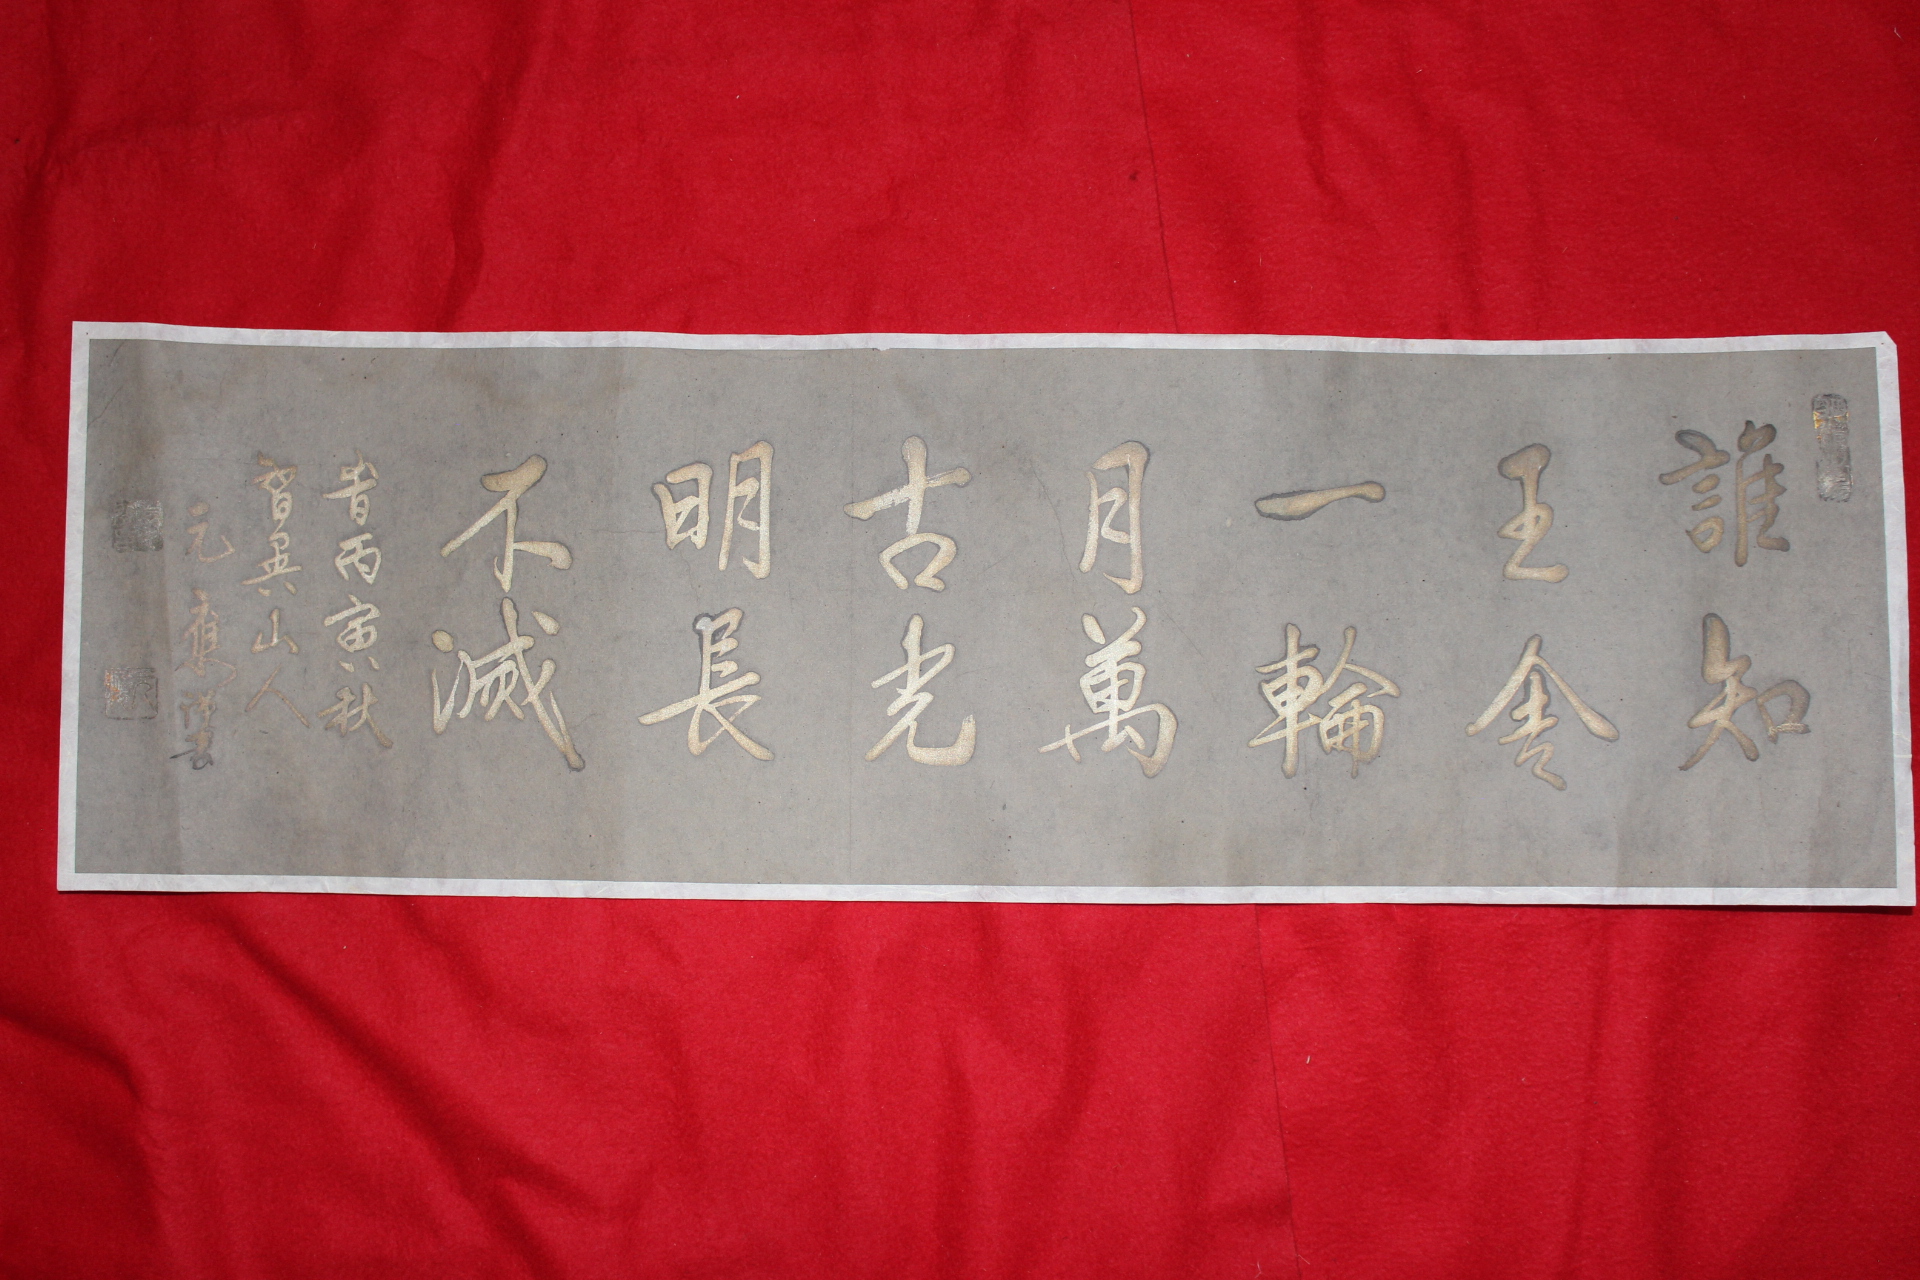 誰知
王舍
一輪
月萬
古光
明長
不滅
昔丙寅秋
山人
元應